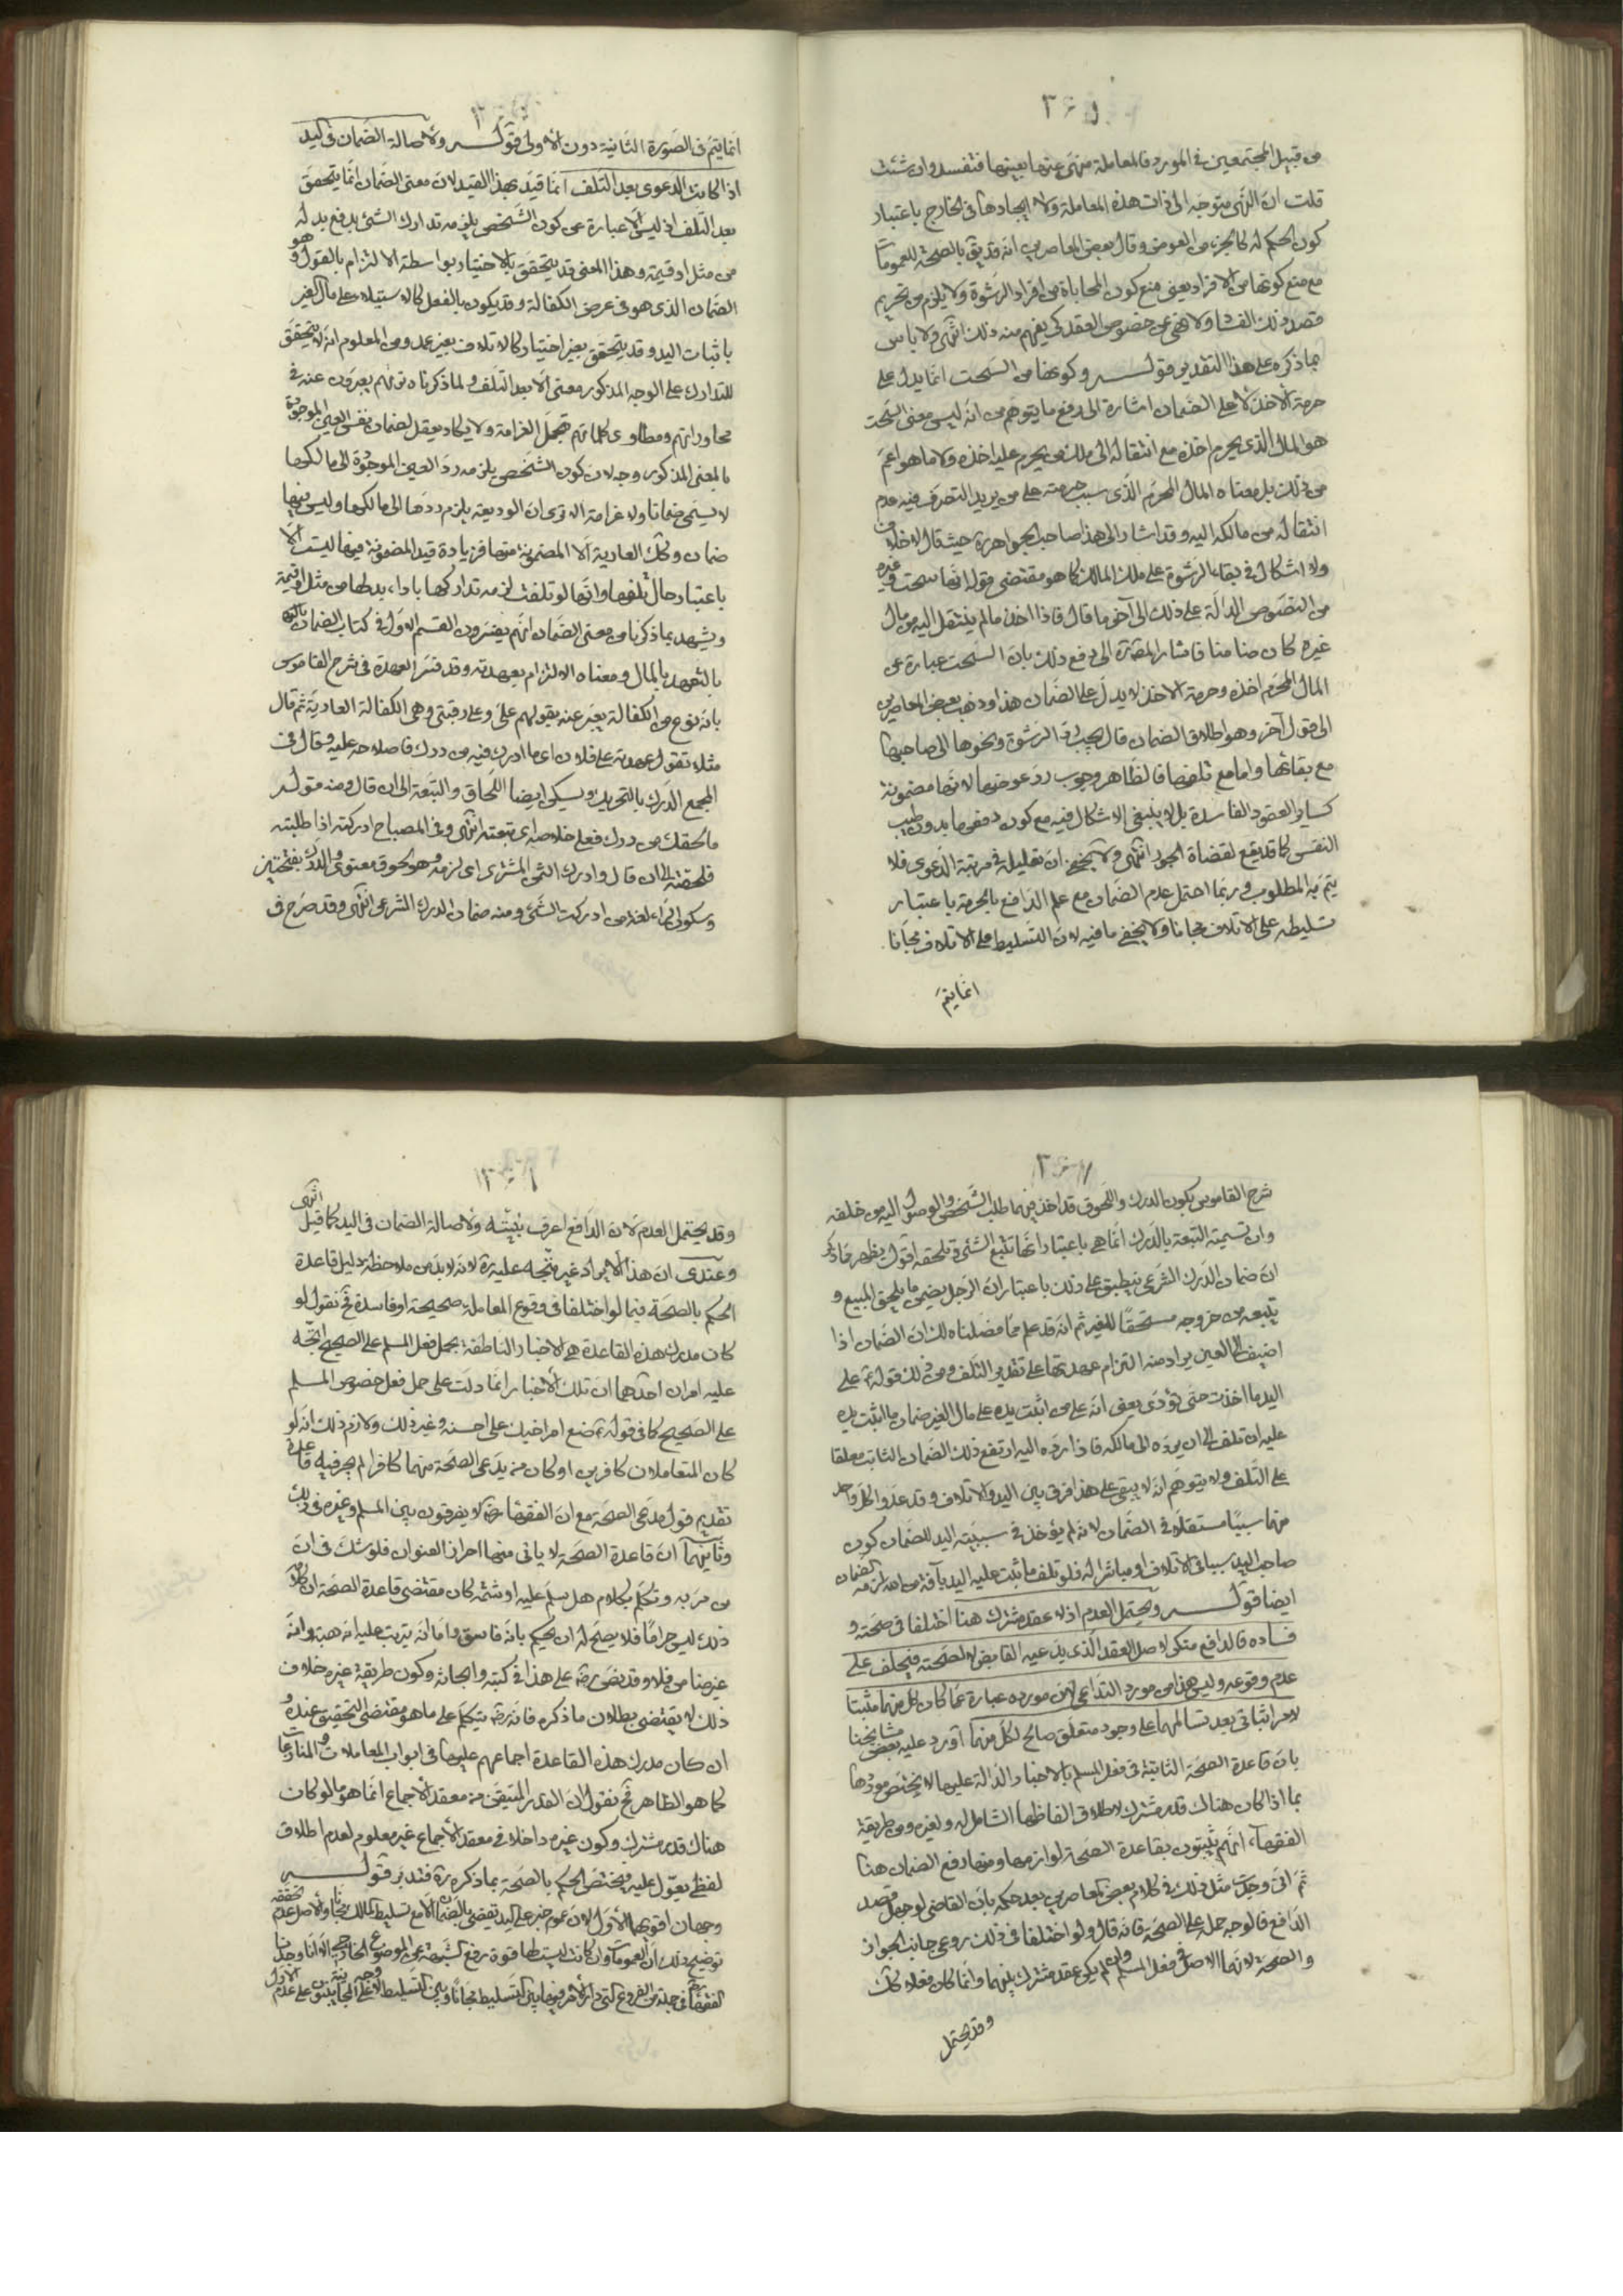 من قبيل المجتمعين في المورد فالمعاملة منهى عنها بعينها فتفسد وان شئت
قلت ان النهى متوجه الى ذات هذه المعاملة ولا ايجادها في الخارج باعتبار
كون الحكم له كالجزء من العوض وقال بعض المعاصرين انه قد يق بالصحة للعمومات
مع منع كونها من الافراد يعنى منع كون المحاباة من افراد الرشوة ولا يلزم من تحريم
قصد ذلك الفساد ولا نهى عن خصوص العقد كى يفهم منه ذلك انتهى ولا باس
بما ذكره على هذا التقدير قوله وكونها من السحت انما يدل على
حرمة الاخذ لا على الضمان اشارة الى دفع ما يتوهم من انه ليس معنى السحت
هو المال الذي يحرم اخذه مع انتقاله الى ملك من يحرم عليه اخذه ولا ما هو اعم
من ذلك بل معناه المال المحرم الذي سبب حرمته على من يريد التصرف فيه عدم
انتقاله من مالكه اليه وقد اشار الى هذا صاحب الجواهر ره حيث قال لا خلاف
ولا اشكال في بقاء الرشوة على ملك المالك كما هو مقتضى قوله انها سحت وغيره
من النصوص الدالة على ذلك الى آخر ما قال فاذا اخذ ما لم ينتقل اليه من مال
غيره كان ضامنا فاشار المص ره الى دفع ذلك بان السحت عبارة عن
المال المحرم اخذه وحرمة الاخذ لا يدل على الضمان هذا وذهب بعض المعاصرين
الى قول آخر وهو اطلاق الضمان قال يجب رد الرشوة ونحوها الى صاحبها
مع بقائها واما مع تلفها فالظاهر وجوب رد عوضها لانها مضمونة
كساير العقود الفاسدة بل لا ينبغى الاشكال فيه مع كون دفعها بدون طيب
النفس كما قد يقع لقضاة الجور انتهى ولا يخفى ان تعليله في مرتبة الدعوى فلا
يتم به المطلوب وربما احتمل عدم الضمان مع علم الدافع بالحرمة باعتبار
تسليطه على الاتلاف مجانا ولا يخفى ما فيه لان التسليط على الاتلاف مجانا
انما يتم
انما يتم في الصورة الثانية دون الاولى قوله ولاصالة الضمان في اليد
اذا كانت الدعوى بعد التلف انما قيد بهذا القيد لان معنى الضمان انما يتحقق
بعد التلف اذ ليس الا عبارة عن كون الشخص يلزمه تدارك الشئ بدفع بدله
من مثل او قيمة وهذا المعنى قد يتحقق بالاختيار بواسطة الالتزام بالقول وهو
الضمان الذي هو في عرض الكفالة وقد يكون بالفعل كالاستيلاء على مال الغير
باثبات اليد وقد يتحقق بغير اختيار كالاتلاف بغير عمد ومن المعلوم انه لا يتحقق
للتدارك على الوجه المذكور معنى الا بعد التلف ولما ذكرناه تريهم يعبرون عنه في
محاوراتهم ومطاوى كلماتهم بتحمل الغرامة ولا يكاد يعقل لضمان نفس العين الموجودة
بالمعنى المذكور وجه لان كون الشخص يلزمه رد العين الموجودة الى مالكها
لا يسمى ضمانا ولا غرامة الا ترى ان الوديعة يلزم ردها الى مالكها وليس فيها
ضمان وكك العارية الا المضمونة منها فزيادة قيد المضمونة فيها ليست الا
باعتبار حال تلفها وانها لو تلفت لزمه تداركها باداء بدلها من مثل او قيمة
ويشهد بما ذكرنا من معنى الضمان انهم يفسرون القسم الاول في كتاب الضمان بانه
بالتعهد بالمال ومعناه الالتزام بعهدته وقد فسر العهدة في شرح القاموس
بانه نوع من الكفالة يعبر عنه بقولهم على وعلى رقبتى وهى الكفالة العادية ثم قال
مثلا تقول عهدته على فلان اى ما ادرك فيه من درك فاصلاحه عليه وقال في
المجمع الدرك بالتحريك ويسكن ايضا اللحاق والتبعة الى ان قال ومنه قوله
ما لحقك من درك فعلى خلاصه اى تبعته انتهى وفى المصباح ادركته اذا طلبته
فلحقته الى ان قال وادرك الثمن المشترى اى لزمه وهو لحوق معنوى والدرك بفتحتين
وسكون الراء لغة من ادركت الشئ ومنه ضمان الدرك الشرعى انتهى وقد صرح في
شرح القاموس بكون الدرك واللحوق قد اخذ فيهما طلب الشخص والوصول اليه من خلفه
وان تسمية التبعة بالدرك انما هي باعتبار انها تتبع الشئ وتلحقه اقول يظهر مما ذكر
ان ضمان الدرك الشرعى ينطبق على ذلك باعتبار ان الرجل يضمن ما يلحق المبيع و
يتبعه من خروجه مستحقا للغير ثم انه قد علم مما فصلناه لك ان الضمان اذا
اضيف الى العين يراد منه التزام عهدتها على تقدير التلف ومن ذلك قوله ع على
اليد ما اخذت حتى تؤدى يعنى انه على من اثبت يده على مال الغير ضمان ما اثبت يده
عليه ان تلف الى ان يرده الى مالكه فاذا رده اليه ارتفع ذلك الضمان الثابت معلقا
على التلف ولا يتوهم انه لا يبقى على هذا فرق بين اليد والاتلاف وقد عدوا كل واحد
منهما سببا مستقلا في الضمان لانه لم يؤخذ في سببية اليد للضمان كون
صاحب اليد سببا في الاتلاف او مباشرا له فلو تلف ما ثبت عليه اليد بآفة من الله لزمه الضمان
ايضا قوله ويحتمل العدم اذ لا عقد مشترك هنا اختلفا في صحته و
فساده فالدافع منكر لاصل العقد الذي يدعيه القابض لا لصحته فيحلف على
عدم وقوعه وليس هذا من مورد التداعى لان مورده عبارة عما كان كل منهما مثبتا
لامر اثباتى بعد تسالمهما على وجود متعلق صالح لكل منهما اورد عليه بعض مشايخنا
بان قاعدة الصحة الثابتة في فعل المسلم بالاخبار الدالة عليها لا يختص موردها
بما اذا كان هناك قدر مشترك لاطلاق الفاظها الشامل له ولغيره ومن طريقة
الفقهاء انهم يثبتون بقاعدة الصحة لوازمها ومنها دفع الضمان هنا
ثم انى وجدت مثل ذلك في كلام بعض المعاصرين بعد حكمه بان القاضى لو جهل قصد
الدافع فالوجه حمله على الصحة فانه قال ولو اختلفا في ذلك روعى جانب الجواز
والصحة لانهما الاصل في فعل المسلم وان لم يكن عقد مشترك بينهما وانما كان فعلا كك
وقد يحتمل
وقد يحتمل العدم لان الدافع اعرف بنيته ولاصالة الضمان في اليد كما قيل انتهى
وعندى ان هذا الايراد غير متجه عليه ره لانه لا بد من ملاحظة دليل قاعدة
الحكم بالصحة فيما لو اختلفا في وقوع المعاملة صحيحة او فاسدة فح نقول لو
كان مدرك هذه القاعدة هي الاخبار الناطقة بحمل فعل المسلم على الصحيح اتجه
عليه امران احدهما ان تلك الاخبار انما دلت على حمل فعل خصوص المسلم
على الصحيح كما في قوله ع ضع امر اخيك على احسنه وغير ذلك ولازم ذلك انه لو
كان المتعاملان كافرين او كان من يدعى الصحة منهما كافرا لم يجر فيه قاعدة
تقديم قول مدعى الصحة مع ان الفقهاء رض لا يفرقون بين المسلم وغيره في ذلك
وثانيهما ان قاعدة الصحة لا ياتى منها احراز العنوان فلو شك في ان
من مر به وتكلم بكلام هل سلم عليه او شتمه كان مقتضى قاعدة الصحة ان كلامه
ذلك ليس حراما فلا يصح له ان يحكم بانه فاسق واما انه يترتب عليه انه هبة وانه
غرضنا من فلا وقد نص رض على هذا في كتبه وابحاثه وكون طريقة غيره خلاف
ذلك لا يقتضى بطلان ما ذكره فانه ره يتكلم على ما هو مقتضى التحقيق عنده و
ان كان مدرك هذه القاعدة اجماعهم عليها في ابواب المعاملات والمنازعات
كما هو الظاهر فح نقول ان القدر المتيقن من معقد الاجماع انما هو ما لو كان
هناك قدر مشترك وكون غيره داخلا في معقد الاجماع غير معلوم لعدم اطلاق
لفظى يعول عليه فيختص الحكم بالصحة بما ذكره ره فتدبر قوله
وجهان اقويهما الاول لان عموم خبر على اليد يقضى بالضمان الا مع تسليط المالك مجانا والاصل عدم تحققه
توضيح ذلك ان العمومات وان كانت ليست لها قوة رفع الشبهة عن الموضوع الخارجى الا انا وجدنا
الفقهاء في جملة من الفروع التي دار الامر فيها بين التسليط مجانا وبين التسليط لا على وجه المجانية يبنون على عدم الاول